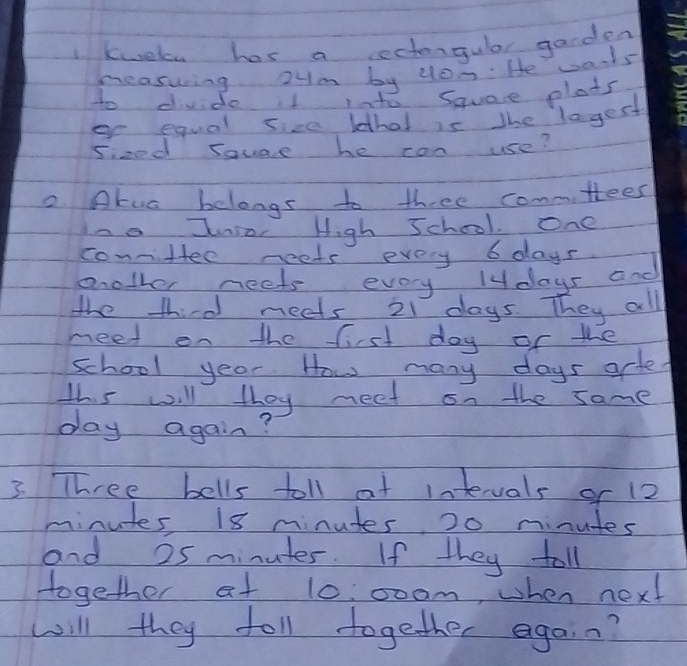 1. Kweku has a rectangular garden
measuring 24m by 40m. He wants
to divide it into Square plots
of equal size What is the lagest
sized square he can use?
2 Akua belongs to three committees
in a Junior High School. One
committee meets every 6 days
another meets every 14 days and
the third meets 21 days. They all
meet on the first day of the
school year How many days after
this will they meet on the same
day again?
3. Three bells toll at intervals of 12
minutes, 18 minutes 20 minutes
and 25 minutes. If they toll
together at 10:00am, when next
will they toll together again?